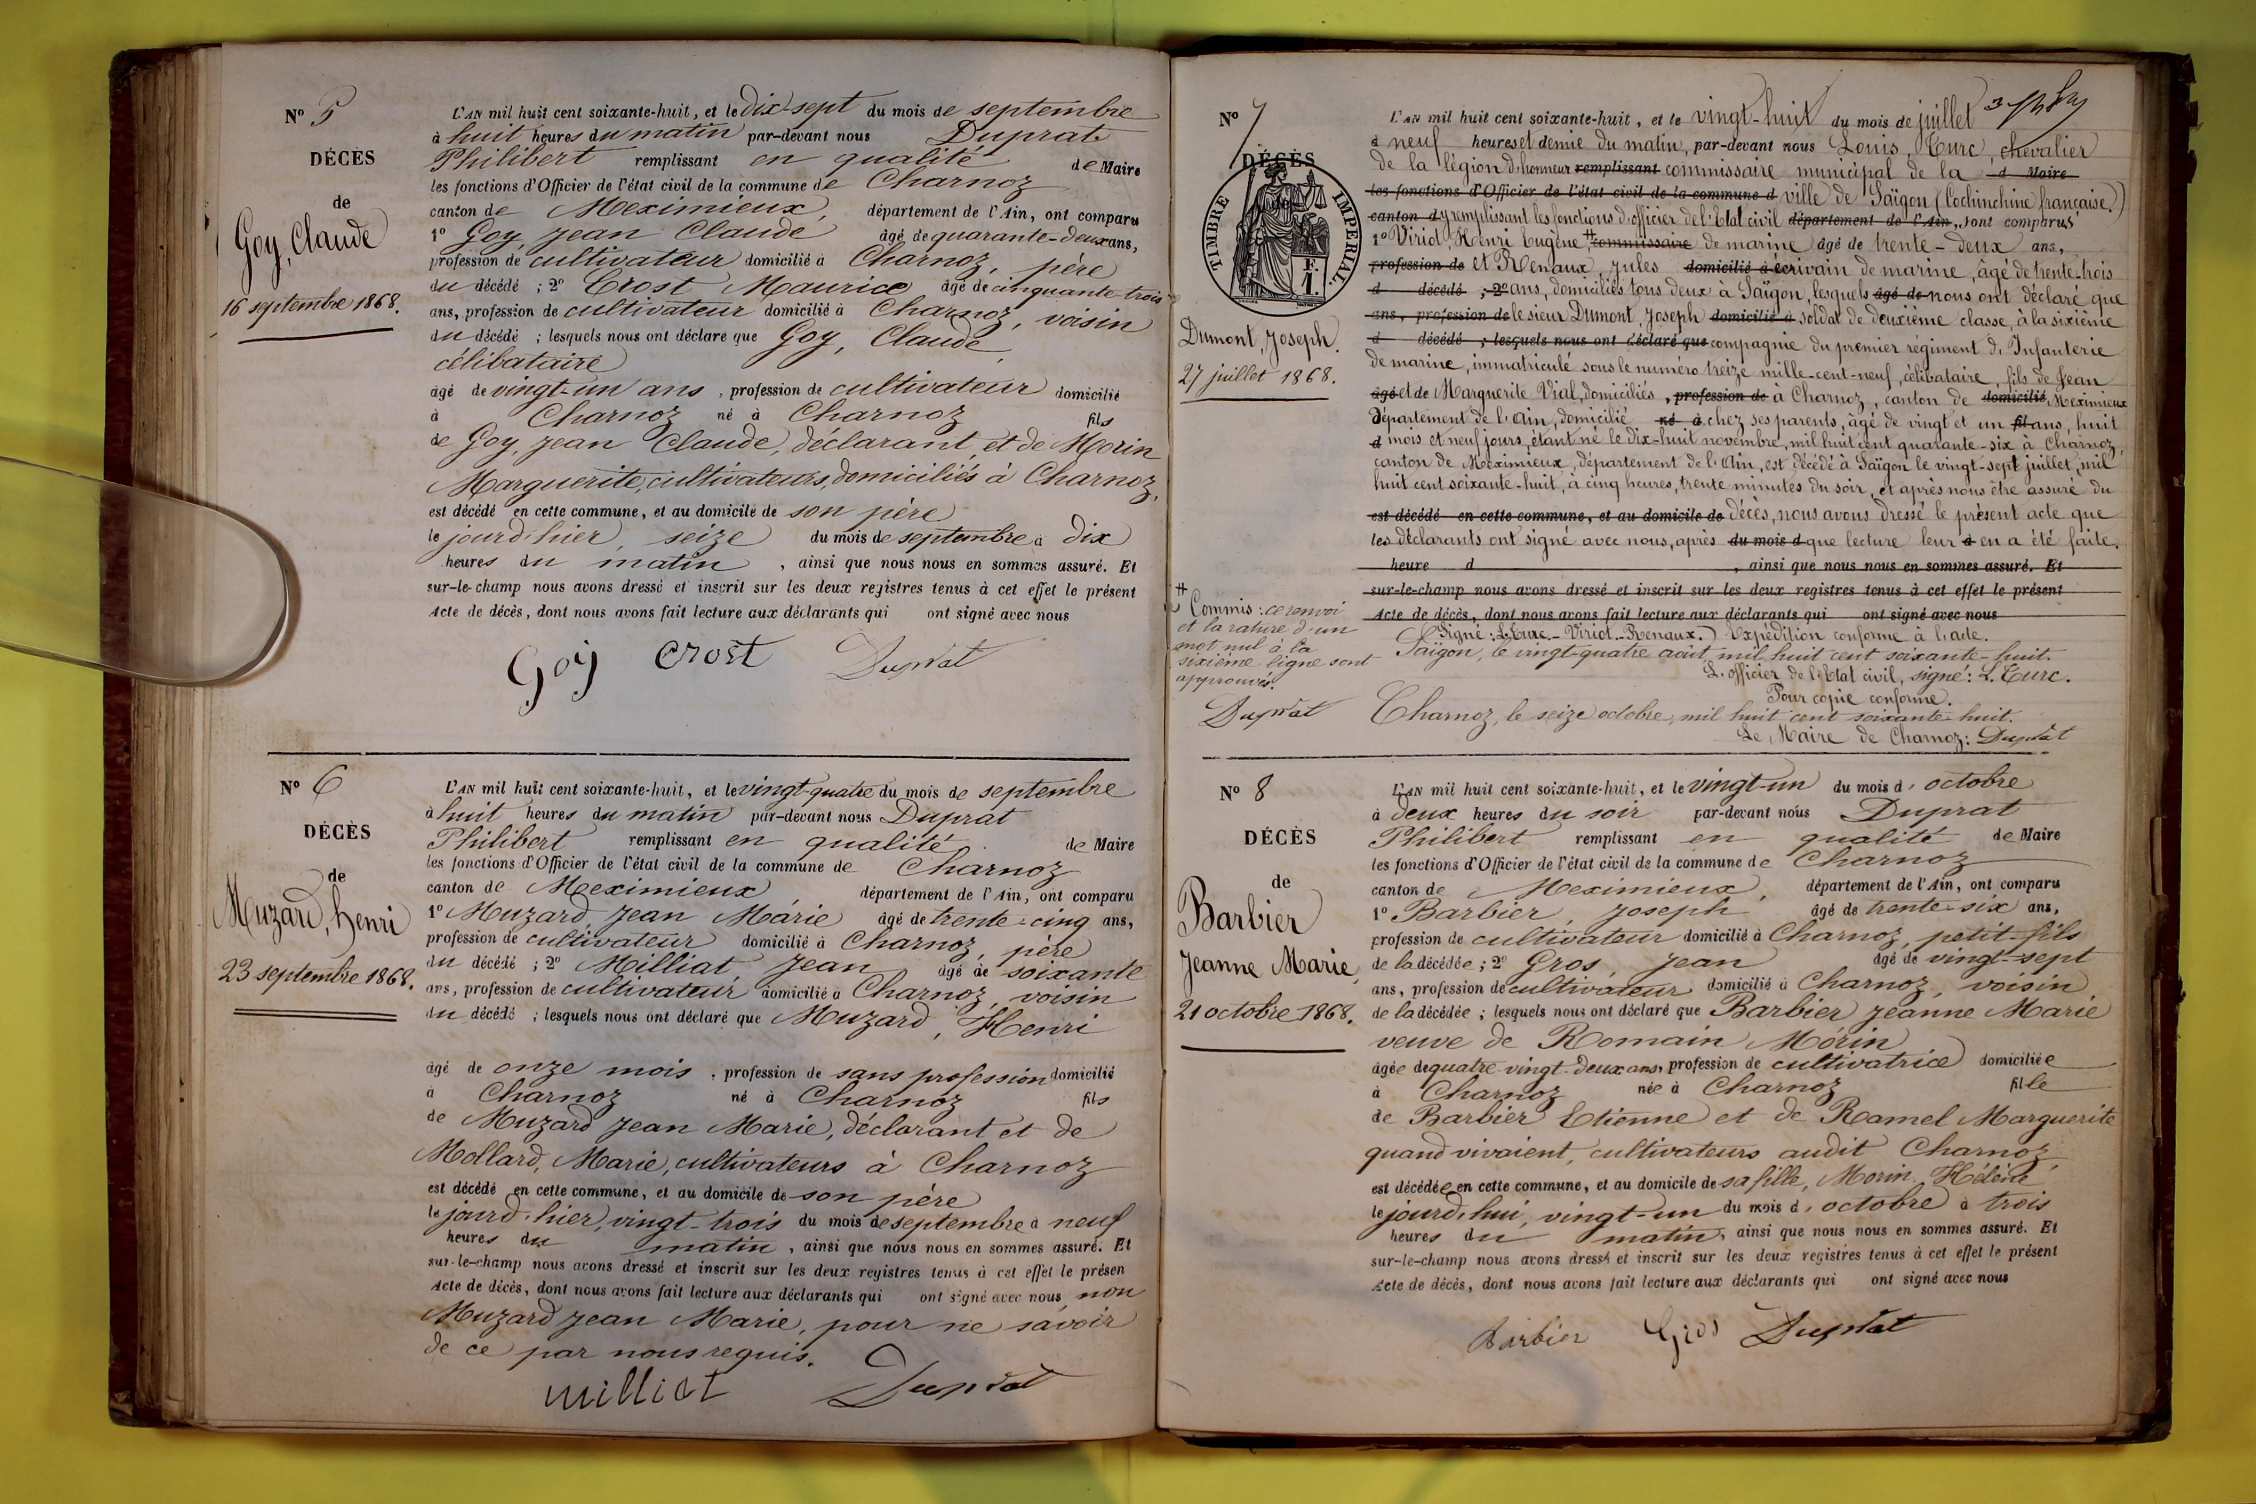 N° 5
DÉCÈS
de
Goy, Claude
16 septembre 1868.
L'AN mil huit cent soixante-huit, et le dix-sept du mois de septembre
à huit heures du matin par-devant nous Duprat
Philibert remplissant en qualité de Maire
les fonctions d'Officier de l'état civil de la commune de Charnoz
canton de Meximieux, département de l'Ain, ont comparu
1° Goy, Jean Claude âgé de quarante-deux ans,
profession de cultivateur domicilié à Charnoz, père
du décédé ; 2° Crost Maurice âgé de cinquante-trois
ans, profession de cultivateur domicilié à Charnoz, voisin
du décédé ; lesquels nous ont déclaré que Goy, Claude,
célibataire
âgé de vingt-un ans, profession de cultivateur domicilié
à Charnoz né à Charnoz fils
de Goy, Jean Claude, déclarant, et de Morin
Marguerite, cultivateurs, domiciliés à Charnoz,
est décédé en cette commune, et au domicile de son père
le jourd'hier, seize du mois de septembre à dix
heures du matin, ainsi que nous nous en sommes assuré. Et
sur-le-champ nous avons dressé et inscrit sur les deux registres tenus à cet effet le présent
Acte de décès, dont nous avons fait lecture aux déclarants qui ont signé avec nous
Goy Crost Duprat
N° 6
DÉCÈS
de
Muzard, henri
23 septembre 1868.
L'AN mil huit cent soixante-huit, et le vingt-quatre du mois de septembre
à huit heures du matin par-devant nous Duprat
Philibert remplissant en qualité de Maire
les fonctions d'Officier de l'état civil de la commune de Charnoz
canton de Meximieux département de l'Ain, ont comparu
1° Muzard Jean Marie âgé de trente-cinq ans,
profession de cultivateur domicilié à Charnoz, père
du décédé ; 2° Milliat, Jean âgé de soixante
ans, profession de cultivateur domicilié à Charnoz, voisin
du décédé ; lesquels nous ont déclaré que Muzard, Henri
âgé de onze mois, profession de sans profession domicilié
à Charnoz né à Charnoz fils
de Muzard Jean Marie, déclarant et de
Mollard, Marie, cultivateurs à Charnoz
est décédé en cette commune, et au domicile de son père
le jourd'hier, vingt-trois du mois de septembre à neuf
heures du matin, ainsi que nous nous en sommes assuré. Et
sur-le-champ nous avons dressé et inscrit sur les deux registres tenus à cet effet le présen
Acte de décès, dont nous avons fait lecture aux déclarants qui ont signé avec nous, non
Muzard Jean Marie, pour ne savoir
de ce par nous requis.
Milliat Duprat
N° 7
DÉCÈS
TIMBRE IMPERIAL
Dumont, Joseph.
27 juillet 1868.
L'AN mil huit cent soixante-huit, et le vingt-huit du mois de juillet
à neuf heures et demie du matin, par-devant nous Louis Turc, chevalier
de la légion d'honneur remplissant commissaire municipal de la d Maire
les fonctions d'Officier de l'état civil de la commune d ville de Saïgon (Cochinchine française.)
canton d y remplissant les fonctions d'officier de l'Etat civil département de l'Ain, sont comparus
1° Viriot, Henri Eugène # commissaire de marine âgé de trente-deux ans,
profession de et Renaux, Jules domicilié à écrivain de marine, âgé de trente-trois
d décédé ; 2° ans, domiciliés tous deux à Saïgon, lesquels âgé de nous ont déclaré que
ans, profession de le sieur Dumont, Joseph domicilié à soldat de deuxième classe, à la sixième
d décédé ; lesquels nous ont déclaré que compagnie du premier régiment d'Infanterie
de marine, immatriculé sous le numéro treize mille-cent-neuf, célibataire, fils de Jean
âgé et de Marguerite Vial, domiciliés, profession de à Charnoz, canton de domicilié Meximieux
département de l'Ain, domicilié né à chez ses parents, âgé de vingt et un fil ans, huit
d mois et neuf jours, étant né le dix-huit novembre, mil huit cent quarante-six à Charnoz,
canton de Meximieux, département de l'Ain, est décédé à Saïgon le vingt-sept juillet, mil
huit cent soixante-huit, à cinq heures, trente minutes du soir, et après nous être assuré du
est décédé en cette commune, et au domicile de décès, nous avons dressé le présent acte que
les déclarants ont signé avec nous, après du mois d que lecture leur à en a été faite.
heure d , ainsi que nous nous en sommes assuré. Et
sur-le-champ nous avons dressé et inscrit sur les deux registres tenus à cet effet le présent
Acte de décès, dont nous avons fait lecture aux déclarants qui ont signé avec nous
Signé : L. Turc - Viriot - Renaux. Expédition conforme à l'acte.
Saïgon, le vingt-quatre août, mil huit cent soixante-huit.
L'officier de l'Etat civil, signé : L. Turc.
Pour copie conforme.
Charnoz, le seize octobre, mil huit cent soixante-huit.
Le Maire de Charnoz : Duprat
# Commis : ce renvoi
et la rature d'un
mot nul à la
sixième ligne sont
approuvés.
Duprat
N° 8
DÉCÈS
de
Barbier
Jeanne Marie,
21 octobre 1868.
L'AN mil huit cent soixante-huit, et le vingt-un du mois d'octobre
à deux heures du soir par-devant nous Duprat
Philibert remplissant en qualité de Maire
les fonctions d'Officier de l'état civil de la commune de Charnoz
canton de Meximieux, département de l'Ain, ont comparu
1° Barbier, Joseph âgé de trente-six ans,
profession de cultivateur domicilié à Charnoz, petit-fils
de la décédée ; 2° Gros, Jean âgé de vingt-sept
ans, profession de cultivateur domicilié à Charnoz, voisin
de la décédée ; lesquels nous ont déclaré que Barbier Jeanne Marie
veuve de Romain Morin
âgée de quatre-vingt-deux ans, profession de cultivatrice domiciliée
à Charnoz née à Charnoz fille
de Barbier Etienne et de Ramel Marguerite
quand vivaient, cultivateurs audit Charnoz,
est décédée en cette commune, et au domicile de sa fille, Morin
le jourd'hui, vingt-un du mois d'octobre à trois
heures du matin, ainsi que nous nous en sommes assuré. Et
sur-le-champ nous avons dressé et inscrit sur les deux registres tenus à cet effet le présent
Acte de décès, dont nous avons fait lecture aux déclarants qui ont signé avec nous
Barbier Gros Duprat